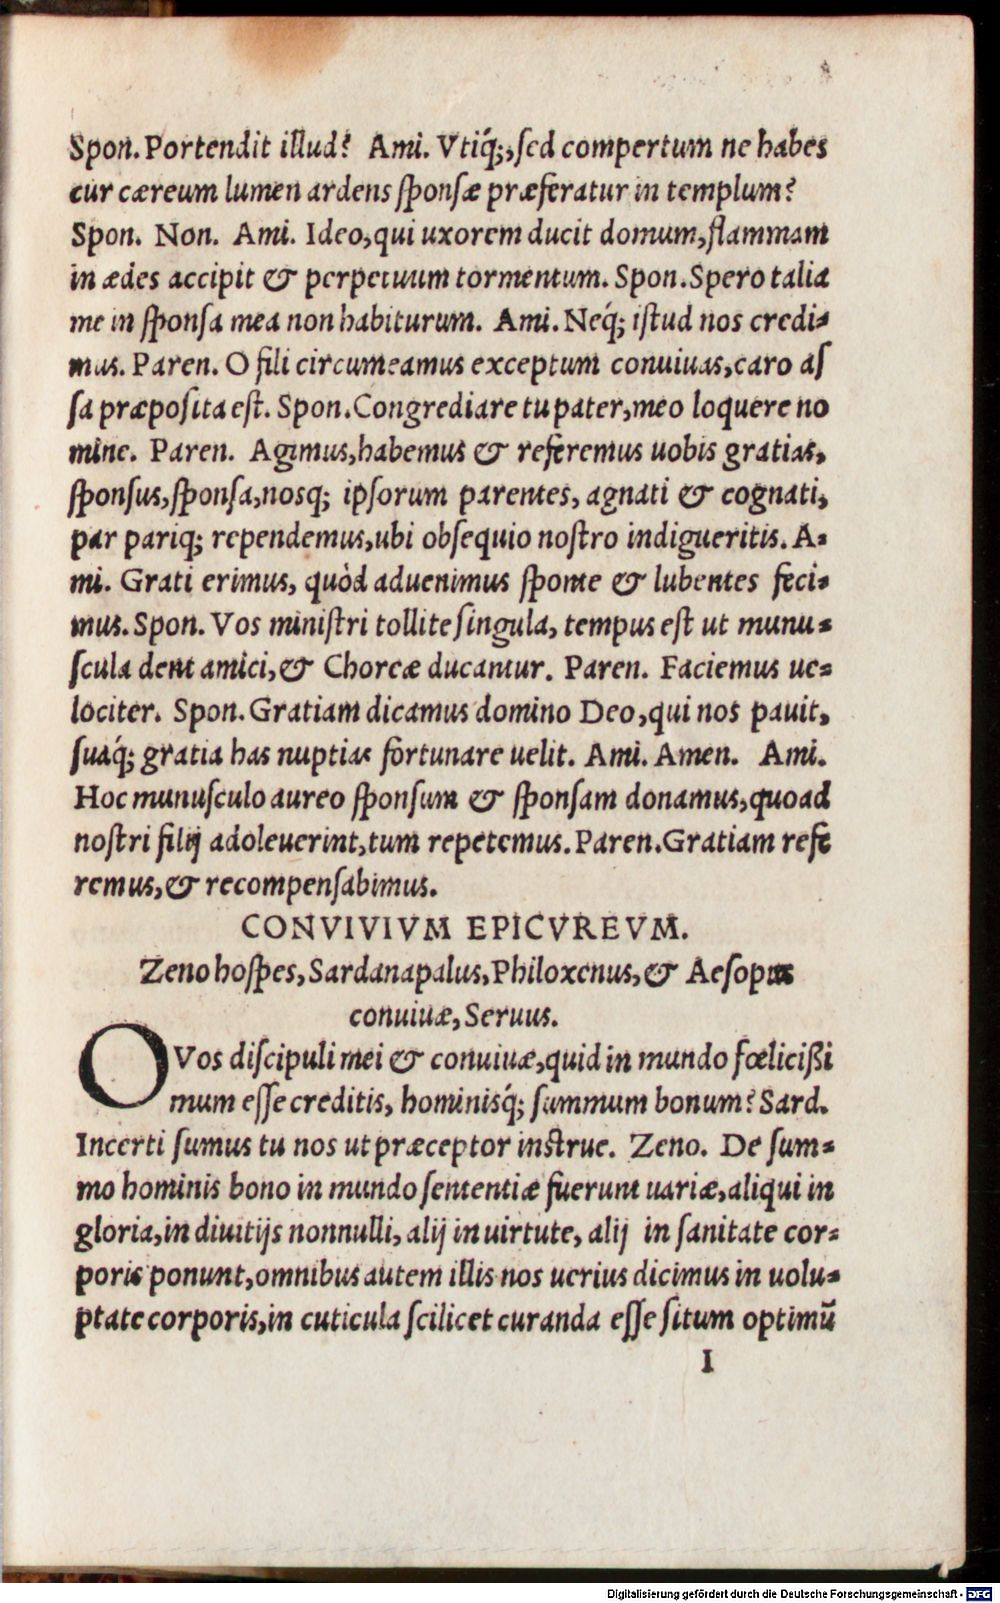 Spon. Portendit illud? Ami. Vtiq́;, sed compertum ne habes
cur cæreum lumen ardens sponsæ præferatur in templum?
Spon. Non. Ami. Ideo, qui uxorem ducit domum, flammam
in ædes accipit & perpetuum tormentum. Spon. Spero talia
me in sponsa mea non habiturum. Ami. Neq́; istud nos credi-
mus. Paren. O fili circumeamus exceptum conuiuas, caro as
sa præposita est. Spon. Congrediare tu pater, meo loquere no
mine. Paren. Agimus, habemus & referemus uobis gratias,
sponsus, sponsa, nosq; ipsorum parentes, agnati & cognati,
par pariq; rependemus, ubi obsequio nostro indigueritis. A-
mi. Grati erimus, quòd aduenimus sponte & lubentes feci-
mus. Spon. Vos ministri tollite singula, tempus est ut munu-
scula dent amici, & Choreæ ducantur. Paren. Faciemus ue-
lociter. Spon. Gratiam dicamus domino Deo, qui nos pauit,
suaq́; gratia has nuptias fortunare uelit. Ami. Amen. Ami.
Hoc munusculo aureo sponsum & sponsam donamus, quoad
nostri filij adoleuerint, tum repetemus. Paren. Gratiam refe
remus, & recompensabimus.
CONVIVIVM EPICVREVM.
Zeno hospes, Sardanapalus, Philoxenus, & Aesopus
conuiuæ, Seruus.
O Vos discipuli mei & conuiuæ, quid in mundo fœlicißi
mum esse creditis, hominisq́; summum bonum? Sard.
Incerti sumus tu nos ut præceptor instrue. Zeno. De sum-
mo hominis bono in mundo sententiæ fuerunt uariæ, aliqui in
gloria, in diuitijs nonnulli, alij in uirtute, alij in sanitate cor-
poris ponunt, omnibus autem illis nos uerius dicimus in uolu-
ptate corporis, in cuticula scilicet curanda esse situm optimū
I
Digitalisierung gefördert durch die Deutsche Forschungsgemeinschaft - DFG